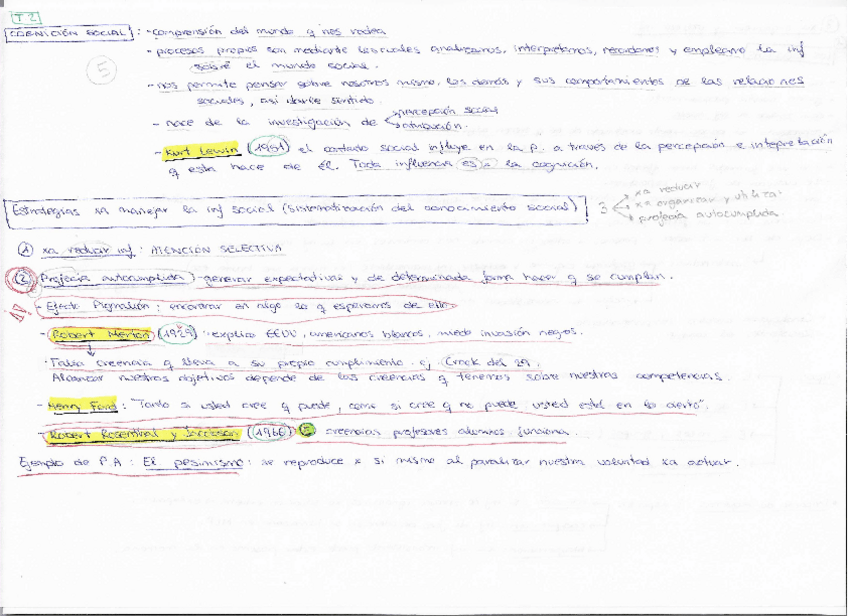 T2
COGNICIÓN SOCIAL : - comprensión del mundo q nos rodea
- procesos propios son mediante los cuales analizamos, interpretamos, recordamos y empleamo la inf
sobre el mundo social.
5
- nos permite pensar sobre nosotros mismo, los demás y sus comportamientos de las relaciones
sociales, así darle sentido.
- nace de la investigación de percepción social
atribución.
- Kurt Lewin (1951) el contexto social influye en la p. a través de la percepción e interpretación
q esta hace de él. Toda influencia es la cognición.
Estrategias xa manejar la inf social (sistematización del conocimiento social) 3 xa reducir
xa organizar y utiliza.
profecía autocumplida
1 xa reducir inf: ATENCIÓN SELECTIVA
2 Profecía autocumplida - generar expectativas y de determinada forma hacer q se cumplan.
- Efecto Pigmalión: encontrar en algo lo q esperamos de ello
- Robert Merton (1929) · explico EEUU, americanos blancos, miedo invasión negros.
· Falsa creencia q lleva a su propio cumplimiento. ej Crack del 29.
Alcanzar nuestros objetivos depende de las creencias q tenemos sobre nuestras competencias.
- Henry Ford: "Tanto si usted cree q puede, como si cree q no puede usted está en lo cierto".
- Robert Rosenthal y Jacobson (1966) creencias profesores alumnos funciona.
Ejemplo de P.A: El pesimismo: se reproduce x si mismo al paralizar nuestra voluntad xa actuar.